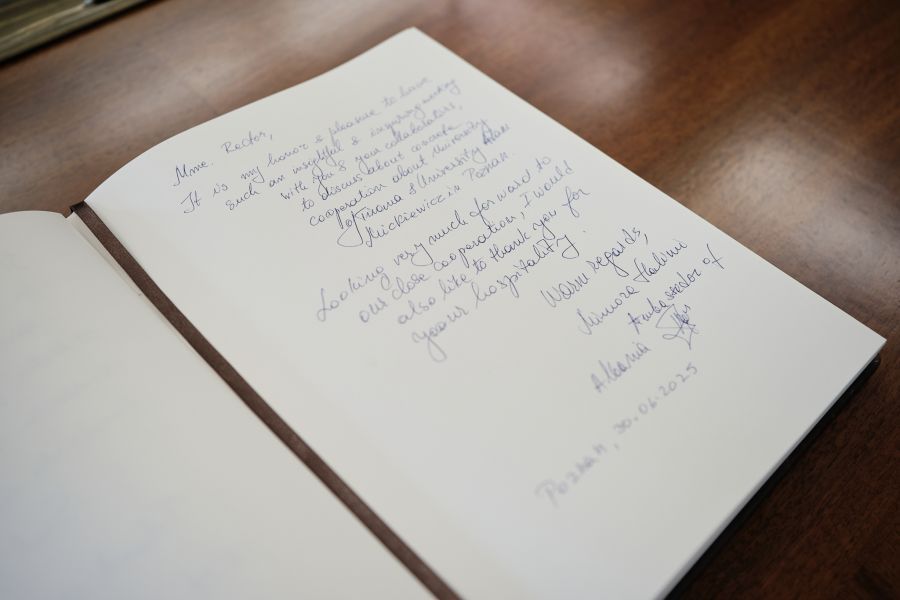 Mme. Rector,
It is my honor & pleasure to have
such an insightful & inspiring meeting
with you & your collaborators,
to discuss about concrete
cooperation about University
of Tirana & University Adam
Mickiewicz in Poznan.
Looking very much forward to
our close cooperation, I would
also like to thank you for
your hospitality.
Warm regards,
Mimoza Halimi
Ambassador of
Albania
Poznan, 30.06.2025